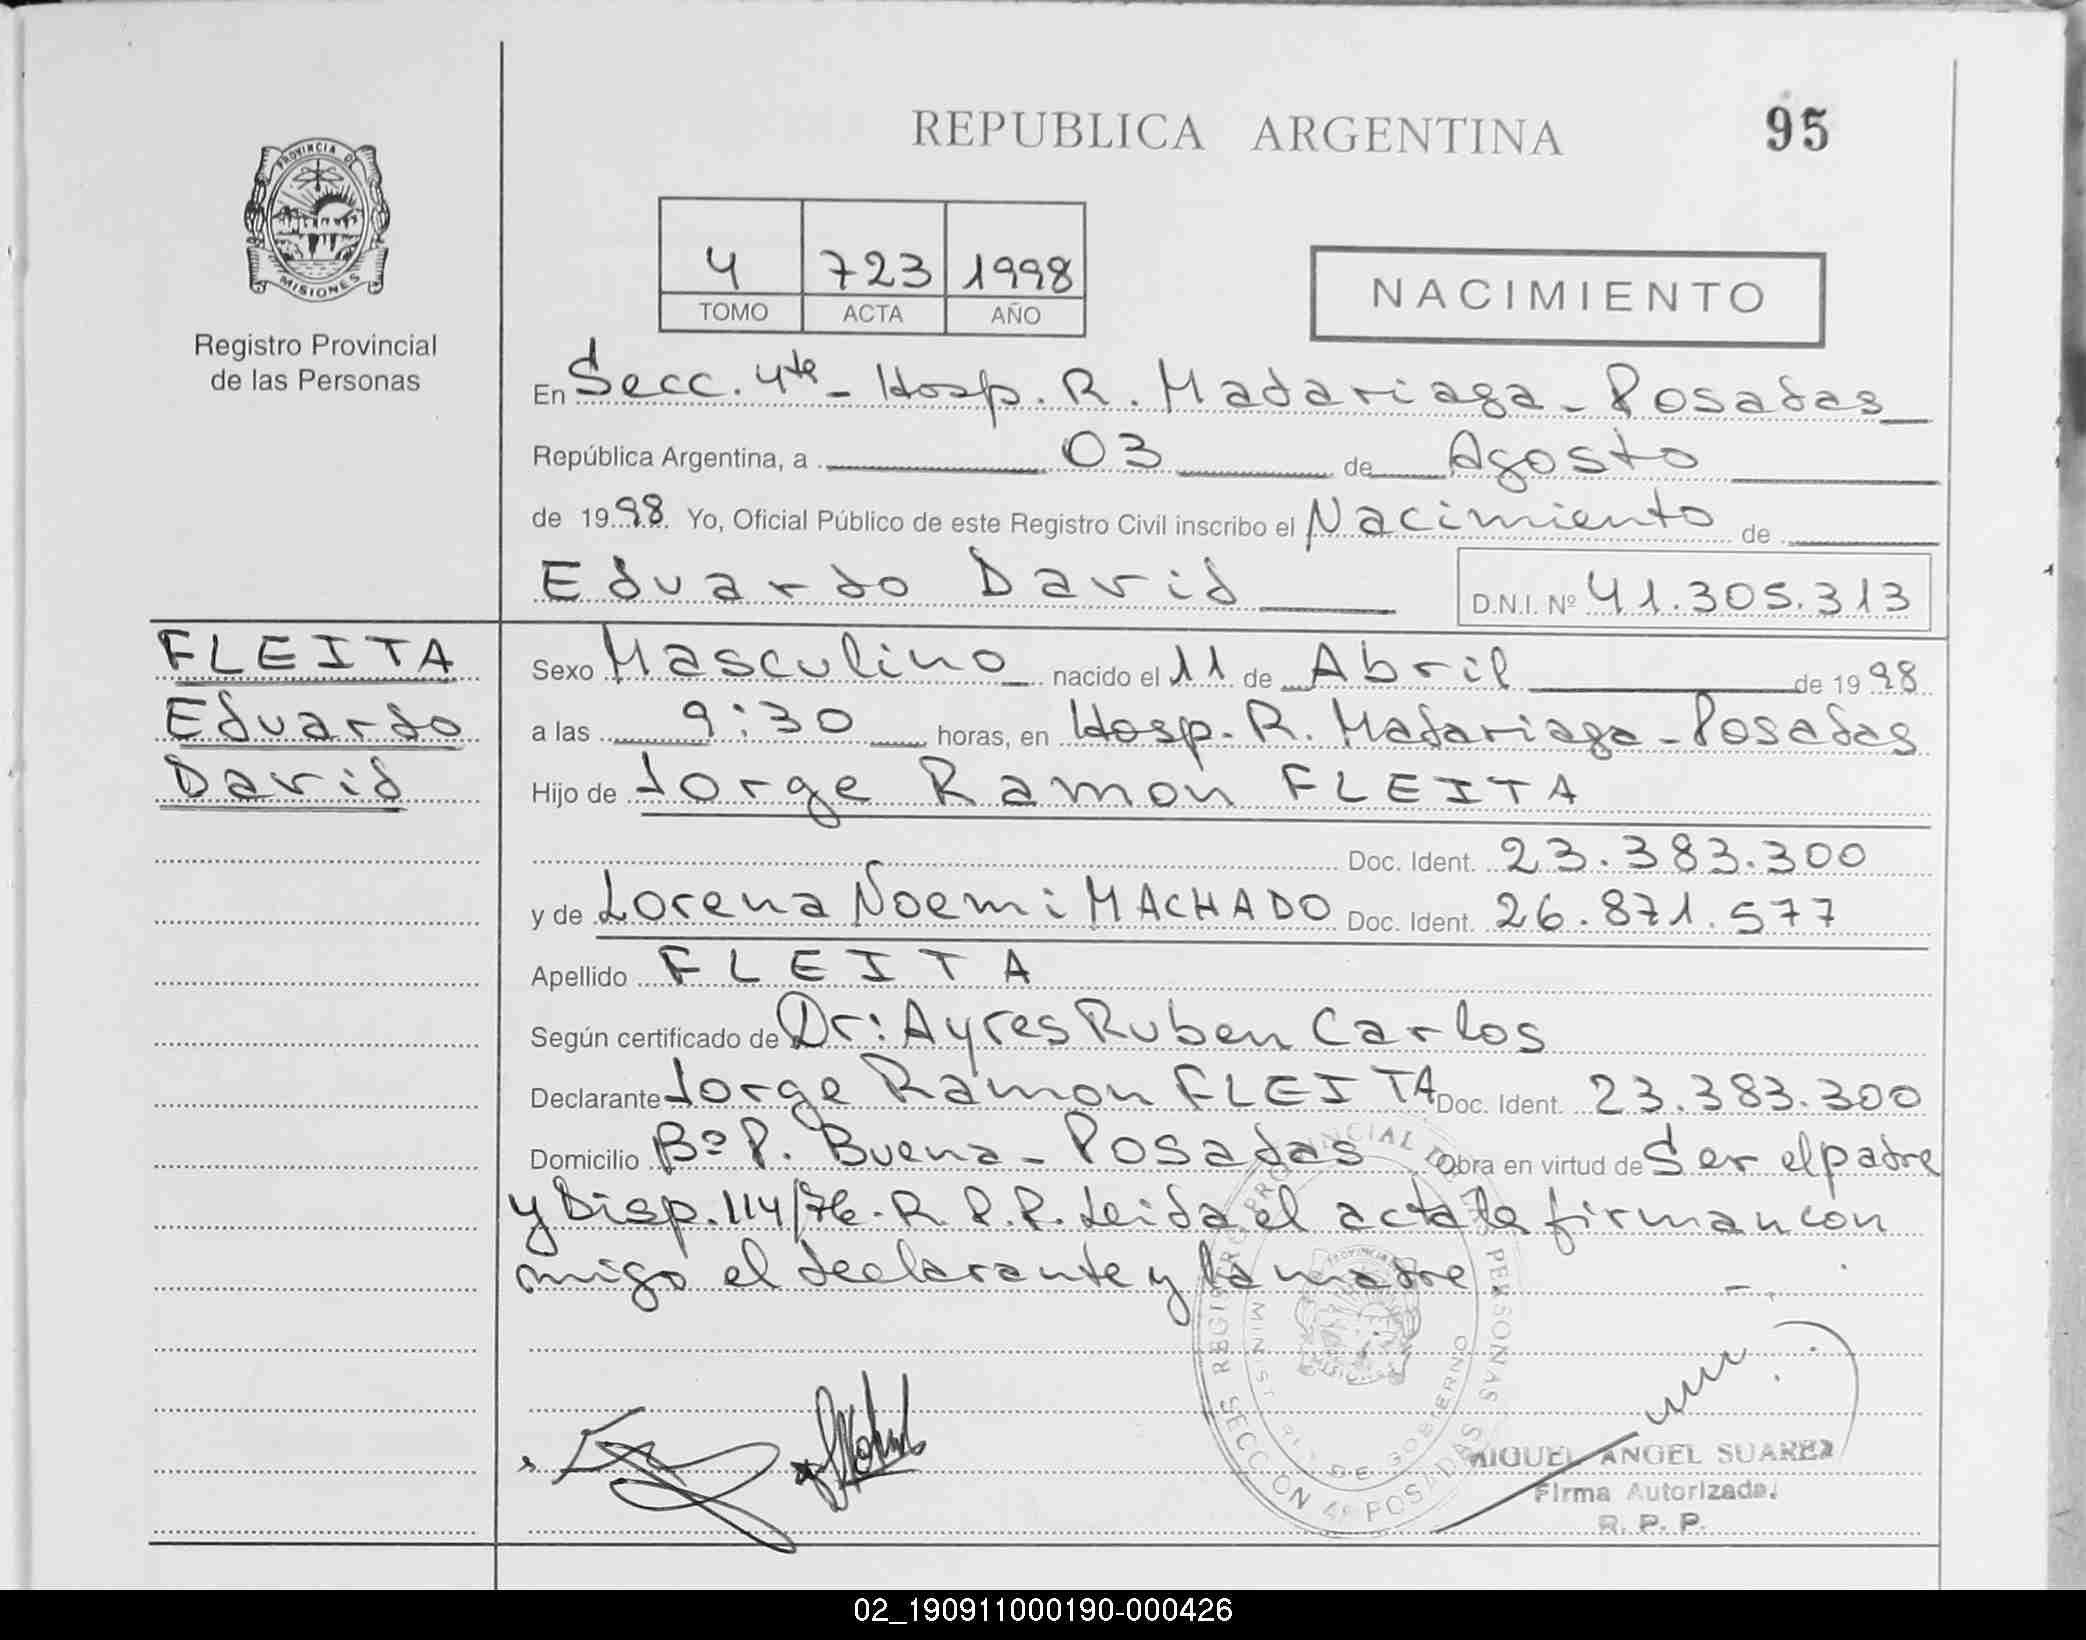 REPUBLICA ARGENTINA
95
PROVINCIA DE
MISIONES
Registro Provincial
de las Personas
4 723 1998
TOMO ACTA AÑO
NACIMIENTO
En Secc. 4ta - Hosp. R. Madariaga - Posadas
República Argentina, a 03 de Agosto
de 1998. Yo, Oficial Público de este Registro Civil inscribo el Nacimiento de
Eduardo David
D.N.I. Nº 41.305.313
FLEITA
Eduardo
David
Sexo Masculino nacido el 11 de Abril de 1998
a las 9:30 horas, en Hosp. R. Madariaga - Posadas
Hijo de Jorge Ramon FLEITA
Doc. Ident. 23.383.300
y de Lorena Noemi MACHADO Doc. Ident. 26.871.577
Apellido FLEITA
Según certificado de Dr: Ayres Ruben Carlos
Declarante Jorge Ramon FLEITA Doc. Ident. 23.383.300
Domicilio Bº P. Buena - Posadas Obra en virtud de Ser el padre
y Disp. 114/76. R. P. P. Leida el acta la firman con
migo el declarante y la madre.
REGISTRO PROVINCIAL DE LAS PERSONAS
SECCION 4ª POSADAS
DE GOBIERNO
MIGUEL ANGEL SUAREZ
Firma Autorizada.
R. P. P.
02_190911000190-000426